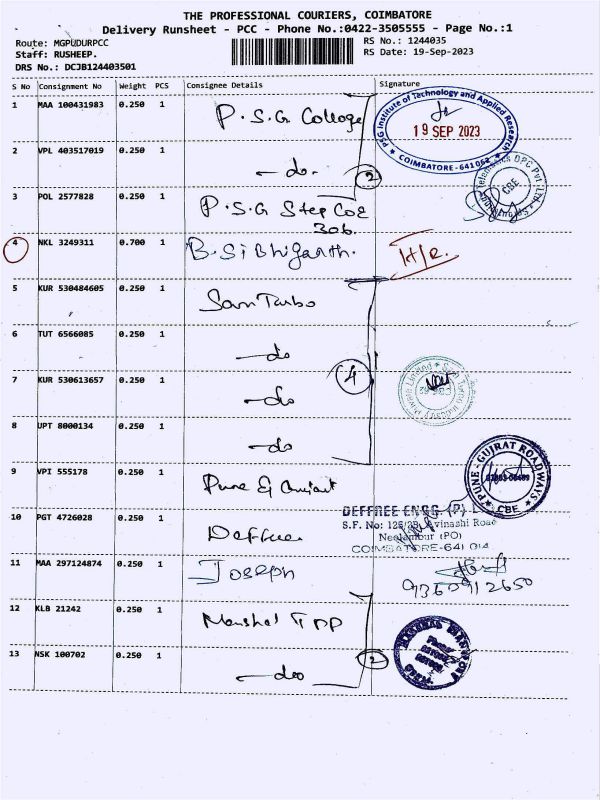 THE PROFESSIONAL COURIERS, COIMBATORE
Delivery Runsheet - PCC - Phone No.:0422-3505555 - Page No.:1
Route: MGPUDURPCC RS No.: 1244035
Staff: RUSHEEP. RS Date: 19-Sep-2023
DRS No.: DCJB124403501
S No Consignment No Weight PCS Consignee Details Signature
1 MAA 100431983 0.250 1 P.S.G College
PSG Institute of Technology and Applied Research
19 SEP 2023
COIMBATORE-641 062
2 VPL 403517019 0.250 1 -do- 2
3 POL 2577828 0.250 1 P.S.G Step COE
306.
CBE
4 NKL 3249311 0.700 1 B.Sibhiganth.
5 KUR 530484605 0.250 1 Sam Turbo
6 TUT 6566085 0.250 1 -do
7 KUR 530613657 0.250 1 -do 4
8 UPT 8000134 0.250 1 -do
9 VPI 555178 0.250 1 Pune & Gujarat
PUNE-GUJRAT ROADWAYS
CBE
10 PGT 4726028 0.250 1 Deffree
DEFFREE ENGG (P) L
S.F. No: 126/2B, Avinashi Road
Neelambur (PO)
COIMBATORE-641 014
11 MAA 297124874 0.250 1 Joseph
9360912650
12 KLB 21242 0.250 1 Marshal TPP
13 NSK 100702 0.250 1 -do 2